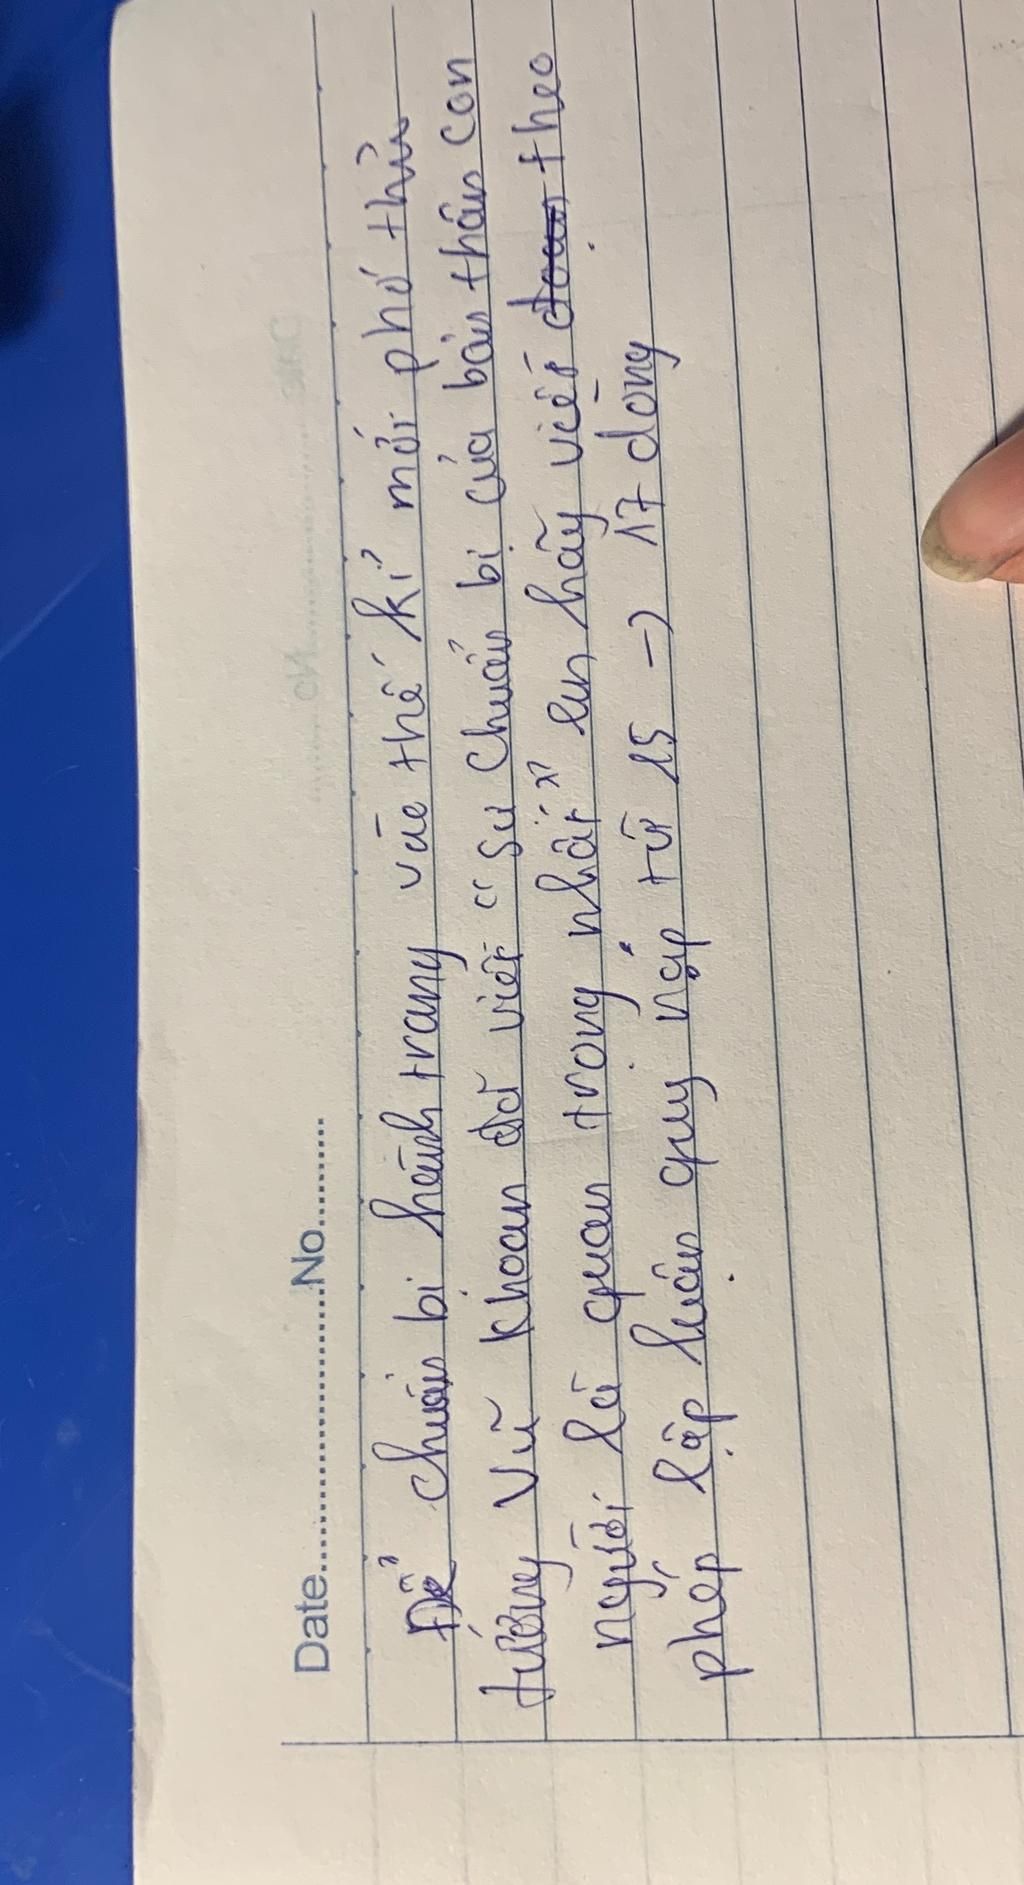 Date...............................No..........
Để chuẩn bị hành trang vào thế kỉ mới phó thủ
tướng Vũ Khoan đã viết "Sự chuẩn bị của bản thân con
người là quan trọng nhất" em hãy viết đoạn theo
phép lập luận quy nạp từ 15 -> 17 dòng